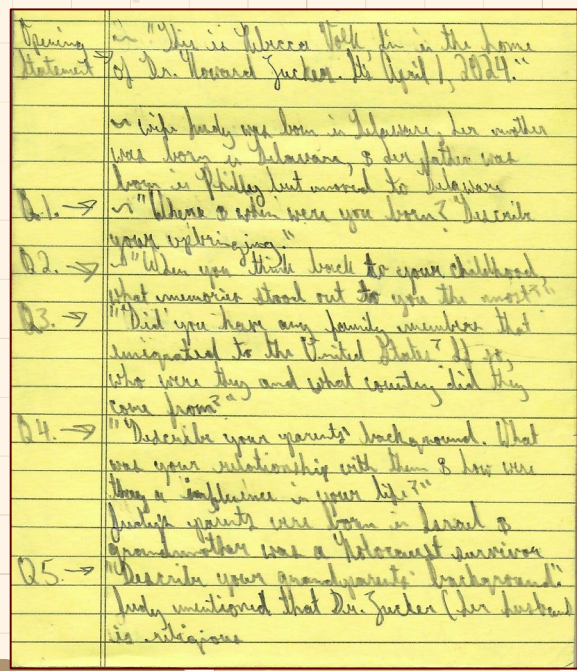 Opening ~ "This is Rebecca Volk, I'm in the home
Statement → of Dr. Howard Zucker. It's April 1, 2024."
~ wife Judy was born in Delaware, her mother
was born in Delaware, & her father was
born in Philly but moved to Delaware
Q.1. → ~ "Where & when were you born? Describe
your upbringing."
Q2. → ~ "When you think back to your childhood,
what memories stood out to you the most?"
Q3. → "Did you have any family members that
emigrated to the United States? If so,
who were they and what country did they
come from?"
Q4. → "Describe your parents' background. What
was your relationship with them & how were
they a influence in your life?"
Judy's parents were born in Israel &
grandmother was a Holocaust survivor
Q5. → "Describe your grandparents' background."
Judy mentioned that Dr. Zucker (her husband
is religious